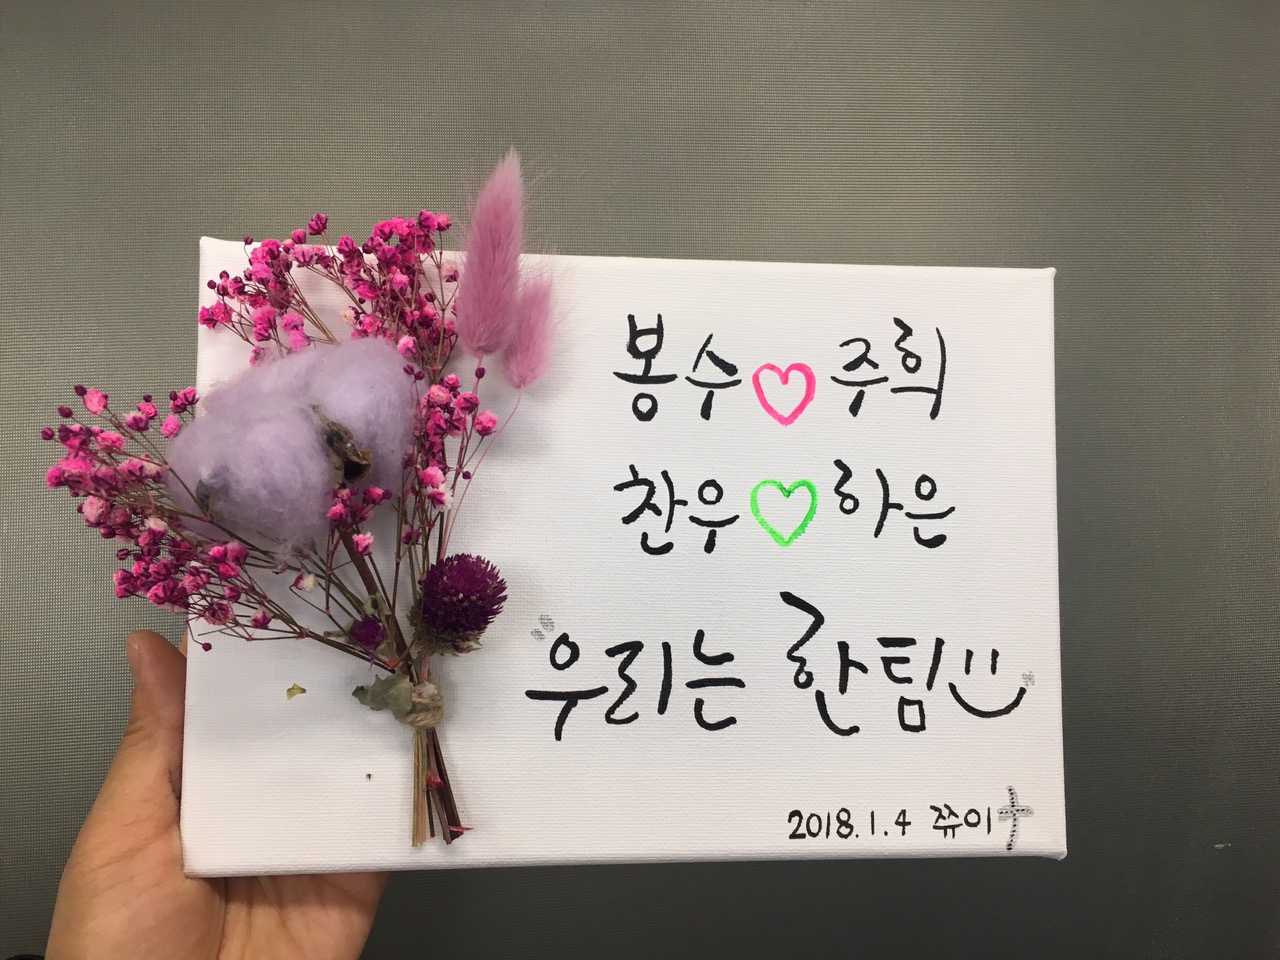 봉수♡주희
찬우♡하은
"우리는 한팀"
2018.1.4 쮸이